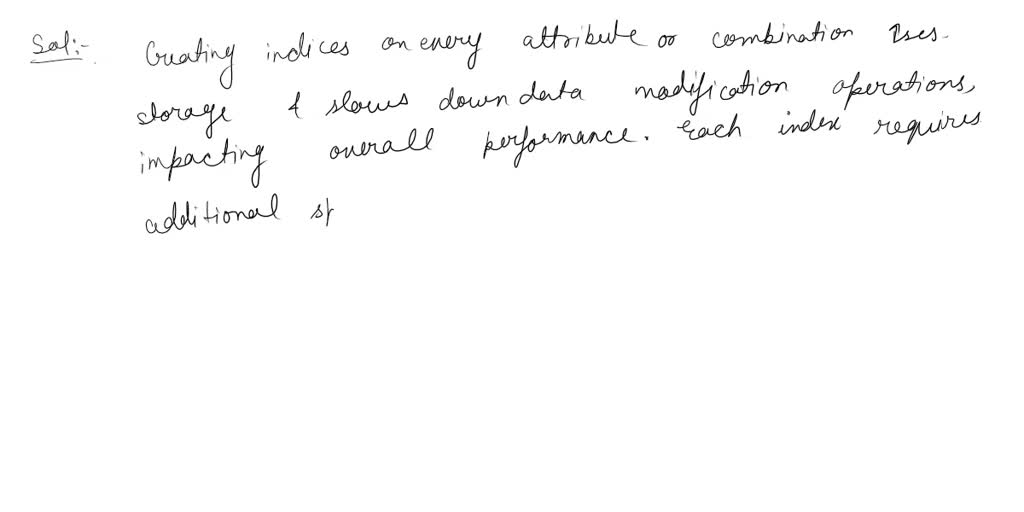 Sol:- Creating indices on every attribute or combination uses
storage & slows down data modification operations,
impacting overall performance. Each index requires
additional sp